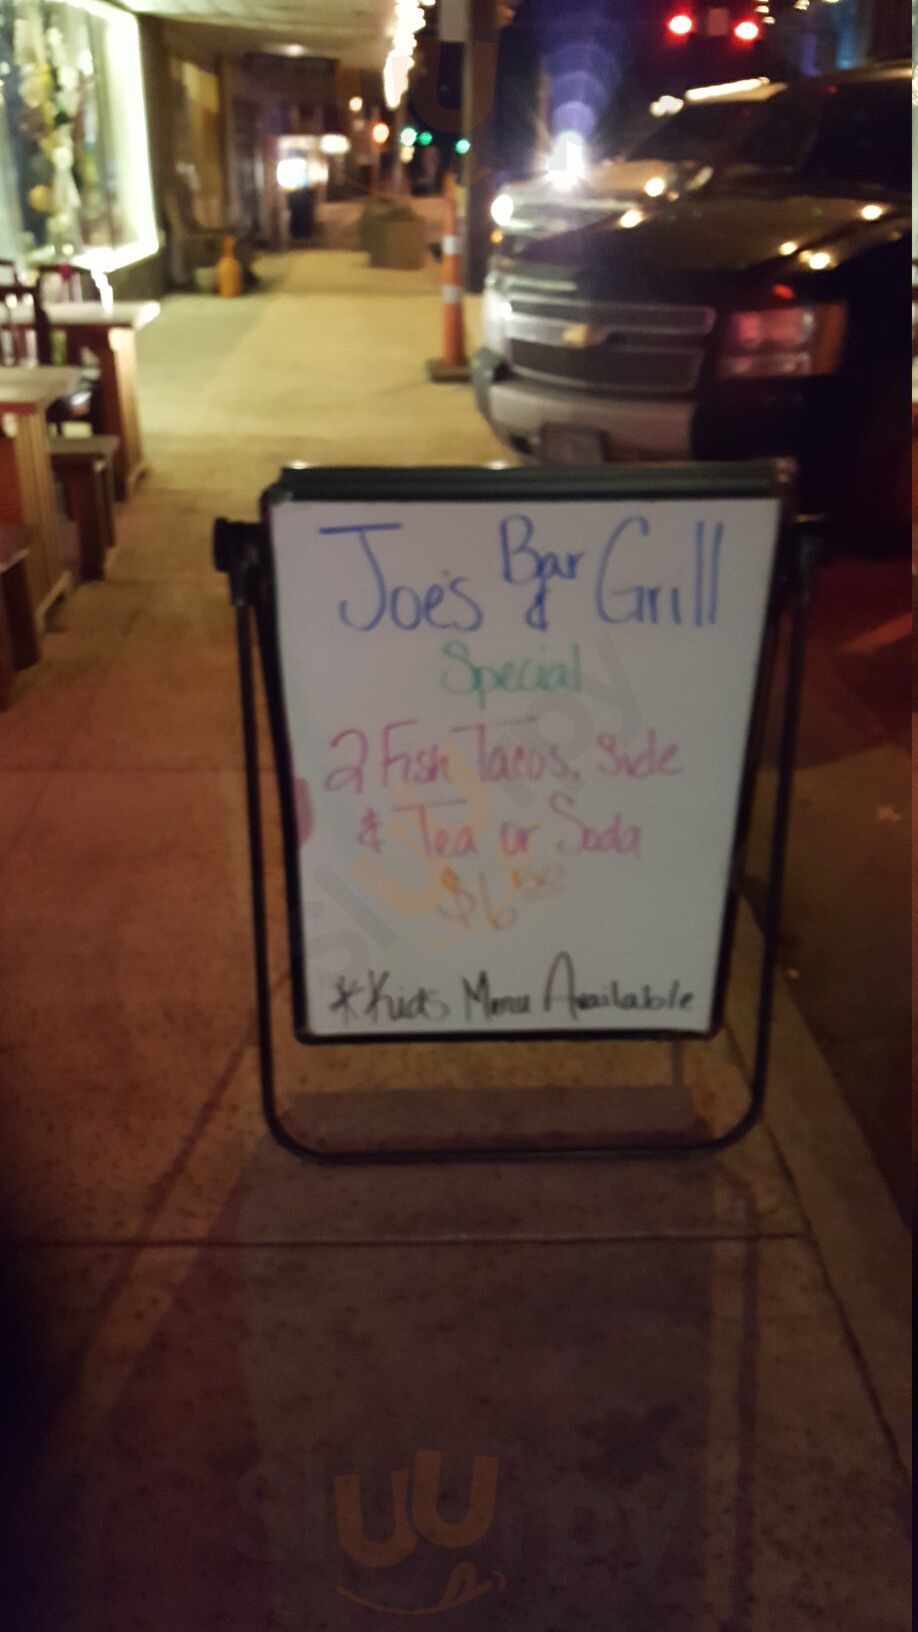 Joe's Bar & Grill
Special
2 Fish Tacos, Side
& Tea or Soda
$6
*Kids Menu Available
sluurpy
sluurpy